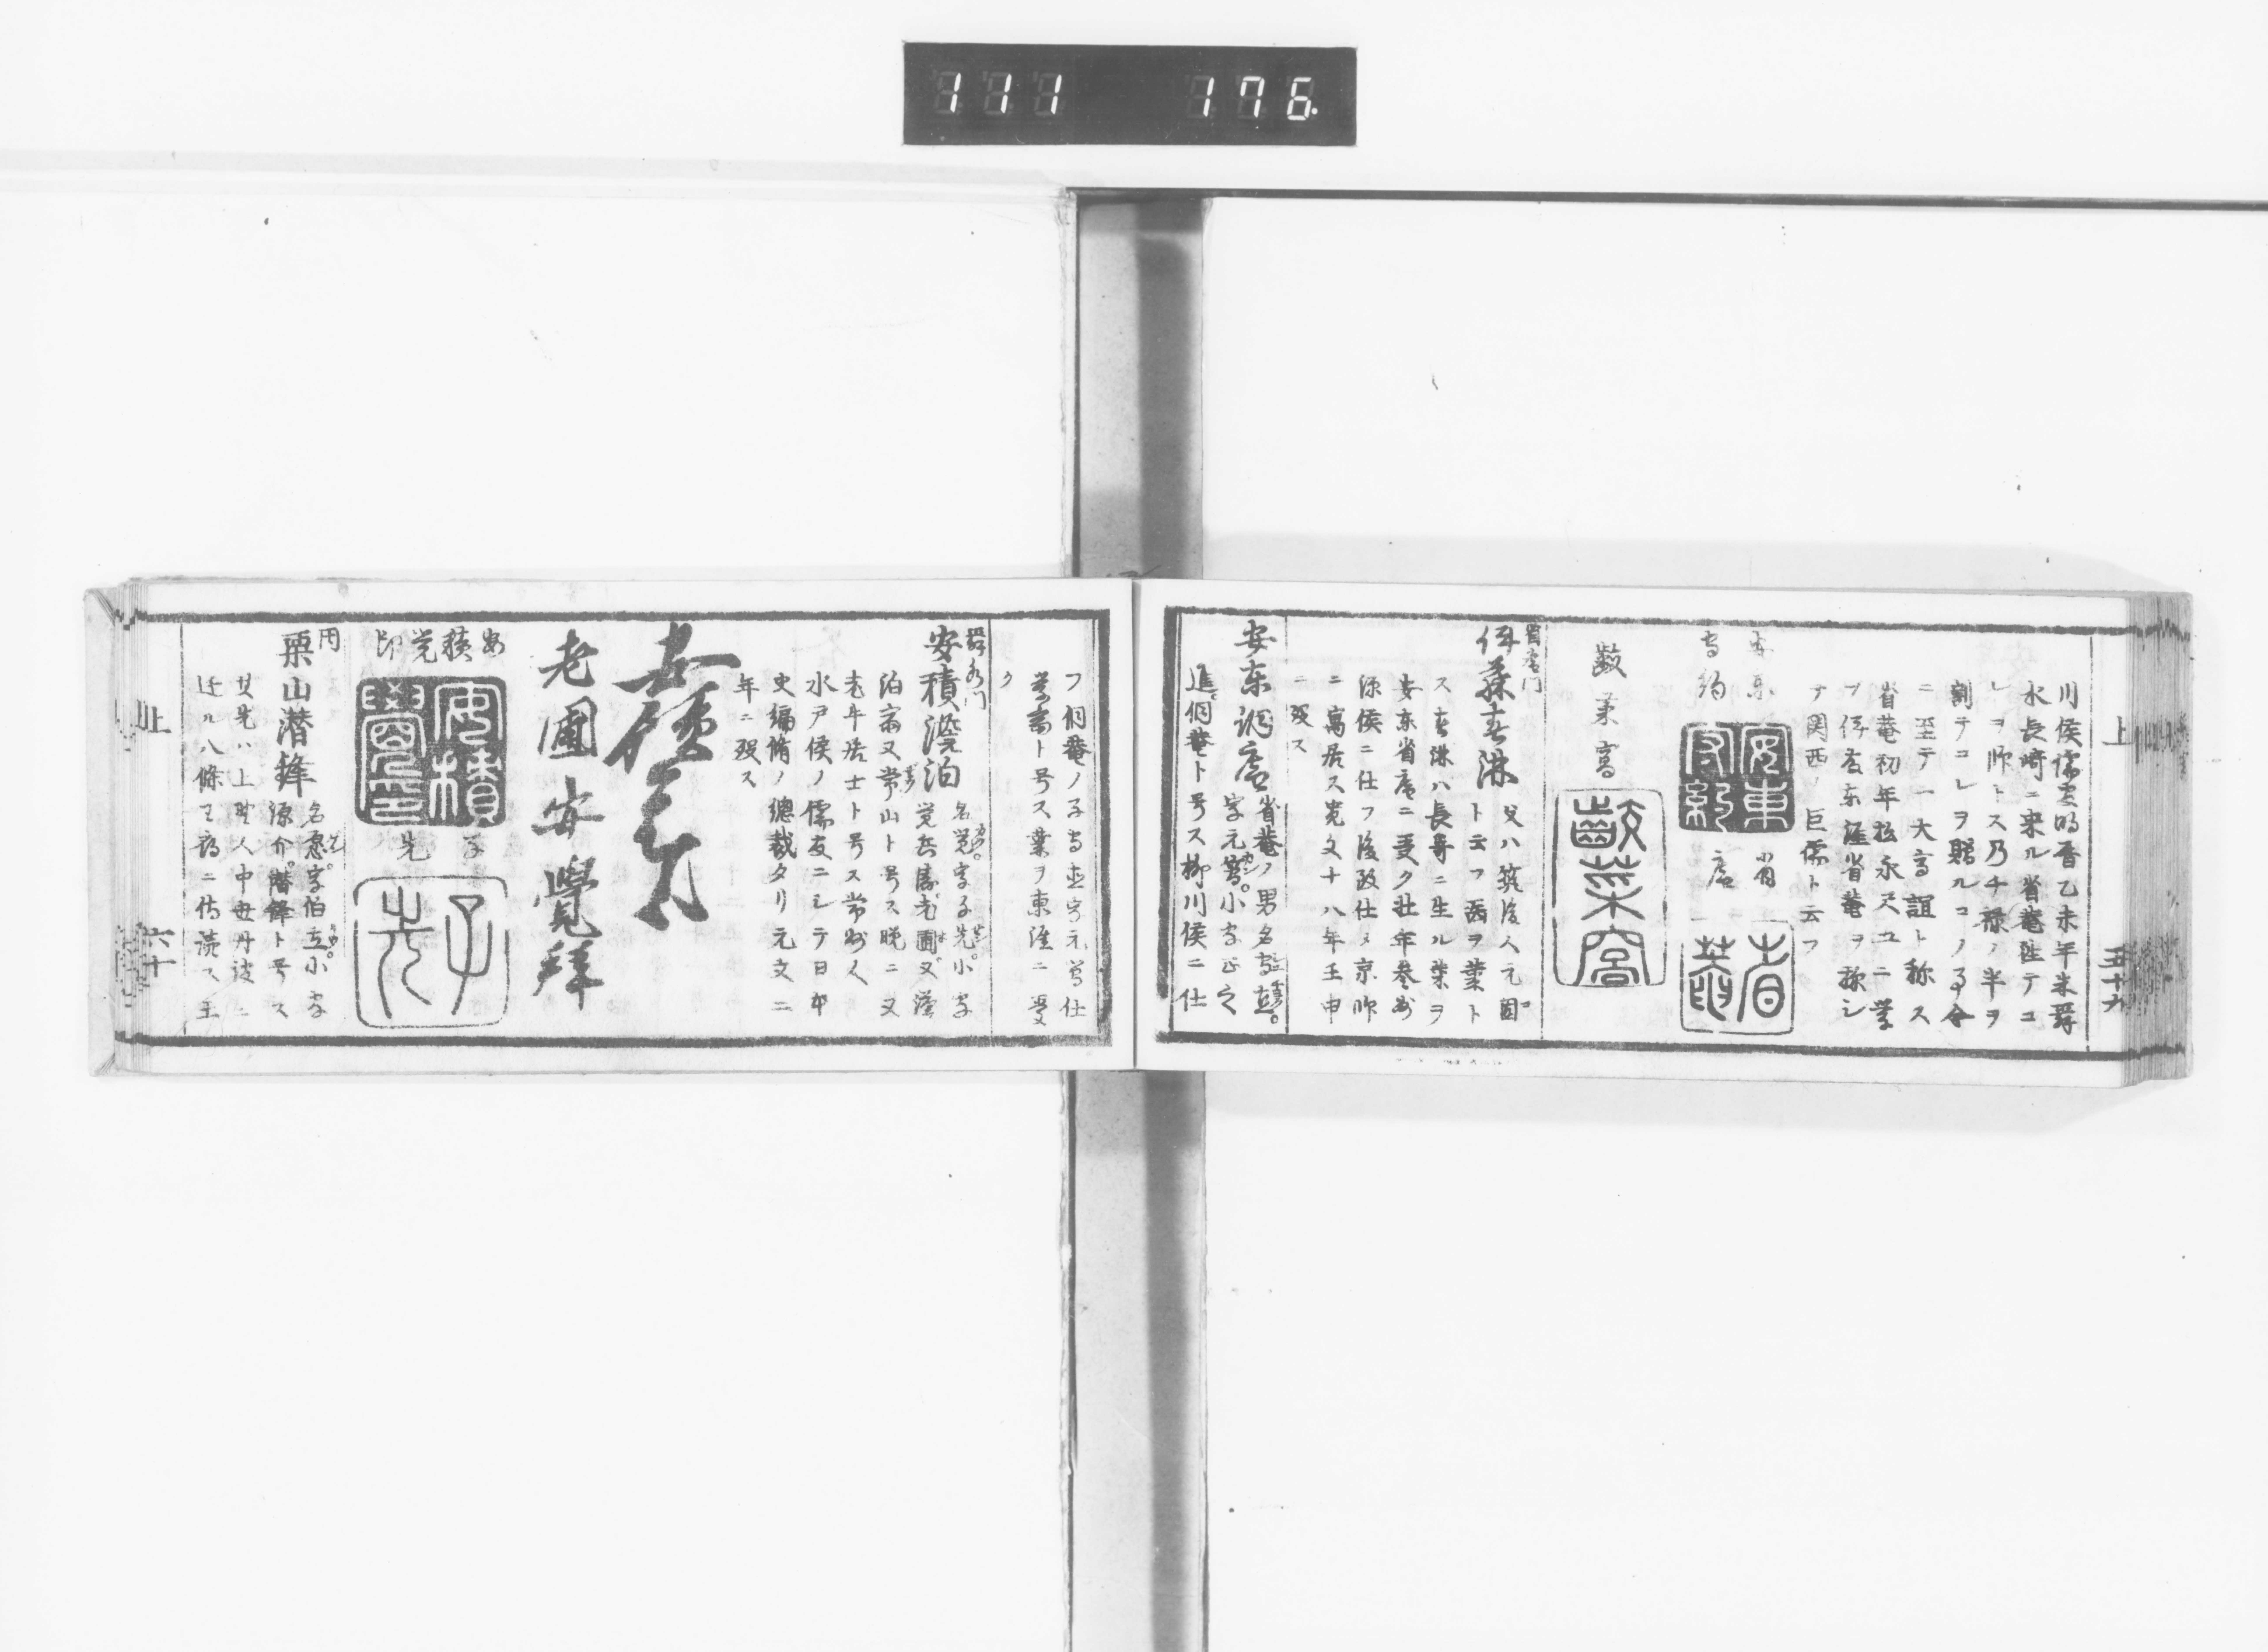 111 176.
上
五十九
川侯儒官明晋乙未年朱舜
水長崎ニ来ル省菴往テコ
レヲ師トス乃チ禄ノ半ヲ
割テコレヲ贈ルコノ事今
ニ至テ一大高誼ト称ス
省菴初年松永尺五ニ学
ブ伊藤东涯省菴ヲ称シ
テ関西ノ巨儒ト云フ
安东
守約
安東守約
省
菴
省菴
齩菜窩
齩菜窩
省菴門
伊藤春琳
父ハ筑後人元固
ト云フ醫ヲ業ト
ス春琳ハ長崎ニ生ル業ヲ
安东省菴ニ受ク壮年参州
源侯ニ仕フ後致仕シ京師
ニ寓居ス寛文十八年壬申
ニ歿ス
安东侗菴
省菴ノ男名守直。
字元簡。小字正之
進。侗菴ト号ス柳川侯ニ仕
フ侗菴ノ子守直字元簡仕
号ス業ヲ東涯ニ受
ク
舜水門
安積澹泊
名覚。字子先。小字
覚兵衛老圃又澹
泊斎又常山ト号ス晩ニ又
老牛居士ト号ス常州人
水戸侯ノ儒臣ニシテ日本
史編脩ノ總裁タリ元文二
年ニ歿ス
老圃安覺拜
安積
覚印
安積覺印
子
先
子先
同
栗山潜鋒
名愿。字伯立。小字
源介。潜鋒ト号ス
其先ハ上野人中世丹波ニ
迁ル八條王府ニ侍読ス王
上
六十